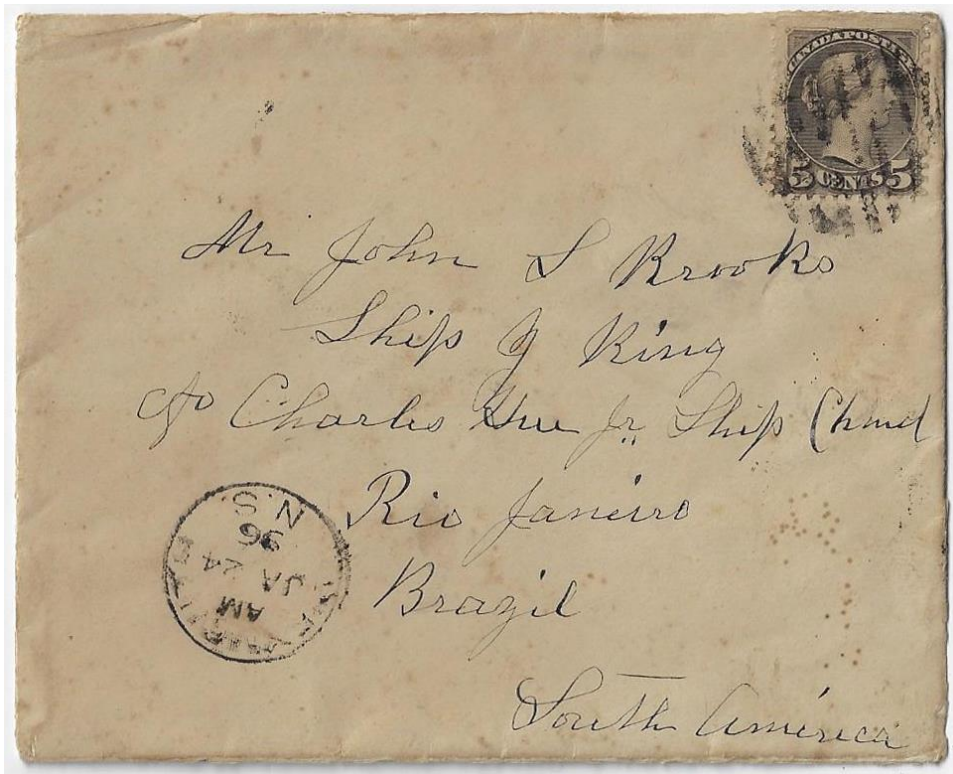 CANADA POSTAGE
5 CENTS 5
Mr John S Krooks
Ship J King
c/o Charles Hue Jr. Ship Chmd
Rio Janeiro
Brazil
South America
AM
JA 24
96
N.S.